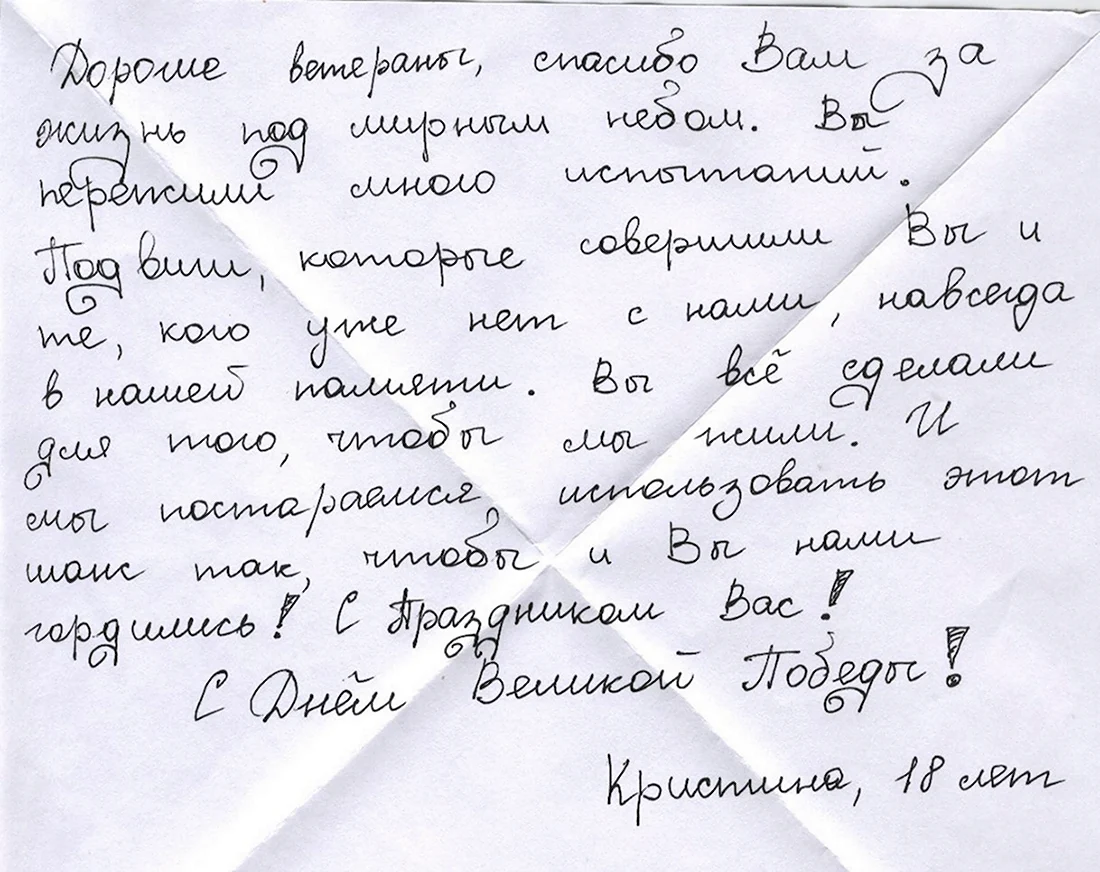 Дорогие ветераны, спасибо Вам за
жизнь под мирным небом. Вы
пережили много испытаний.
Подвиги, которые совершили Вы и
те, кого уже нет с нами, навсегда
в нашей памяти. Вы всё сделали
для того, чтобы мы жили. И
мы постараемся использовать этот
шанс так, чтобы и Вы нами
гордились! С Праздником Вас!
С Днём Великой Победы!
Кристина, 18 лет